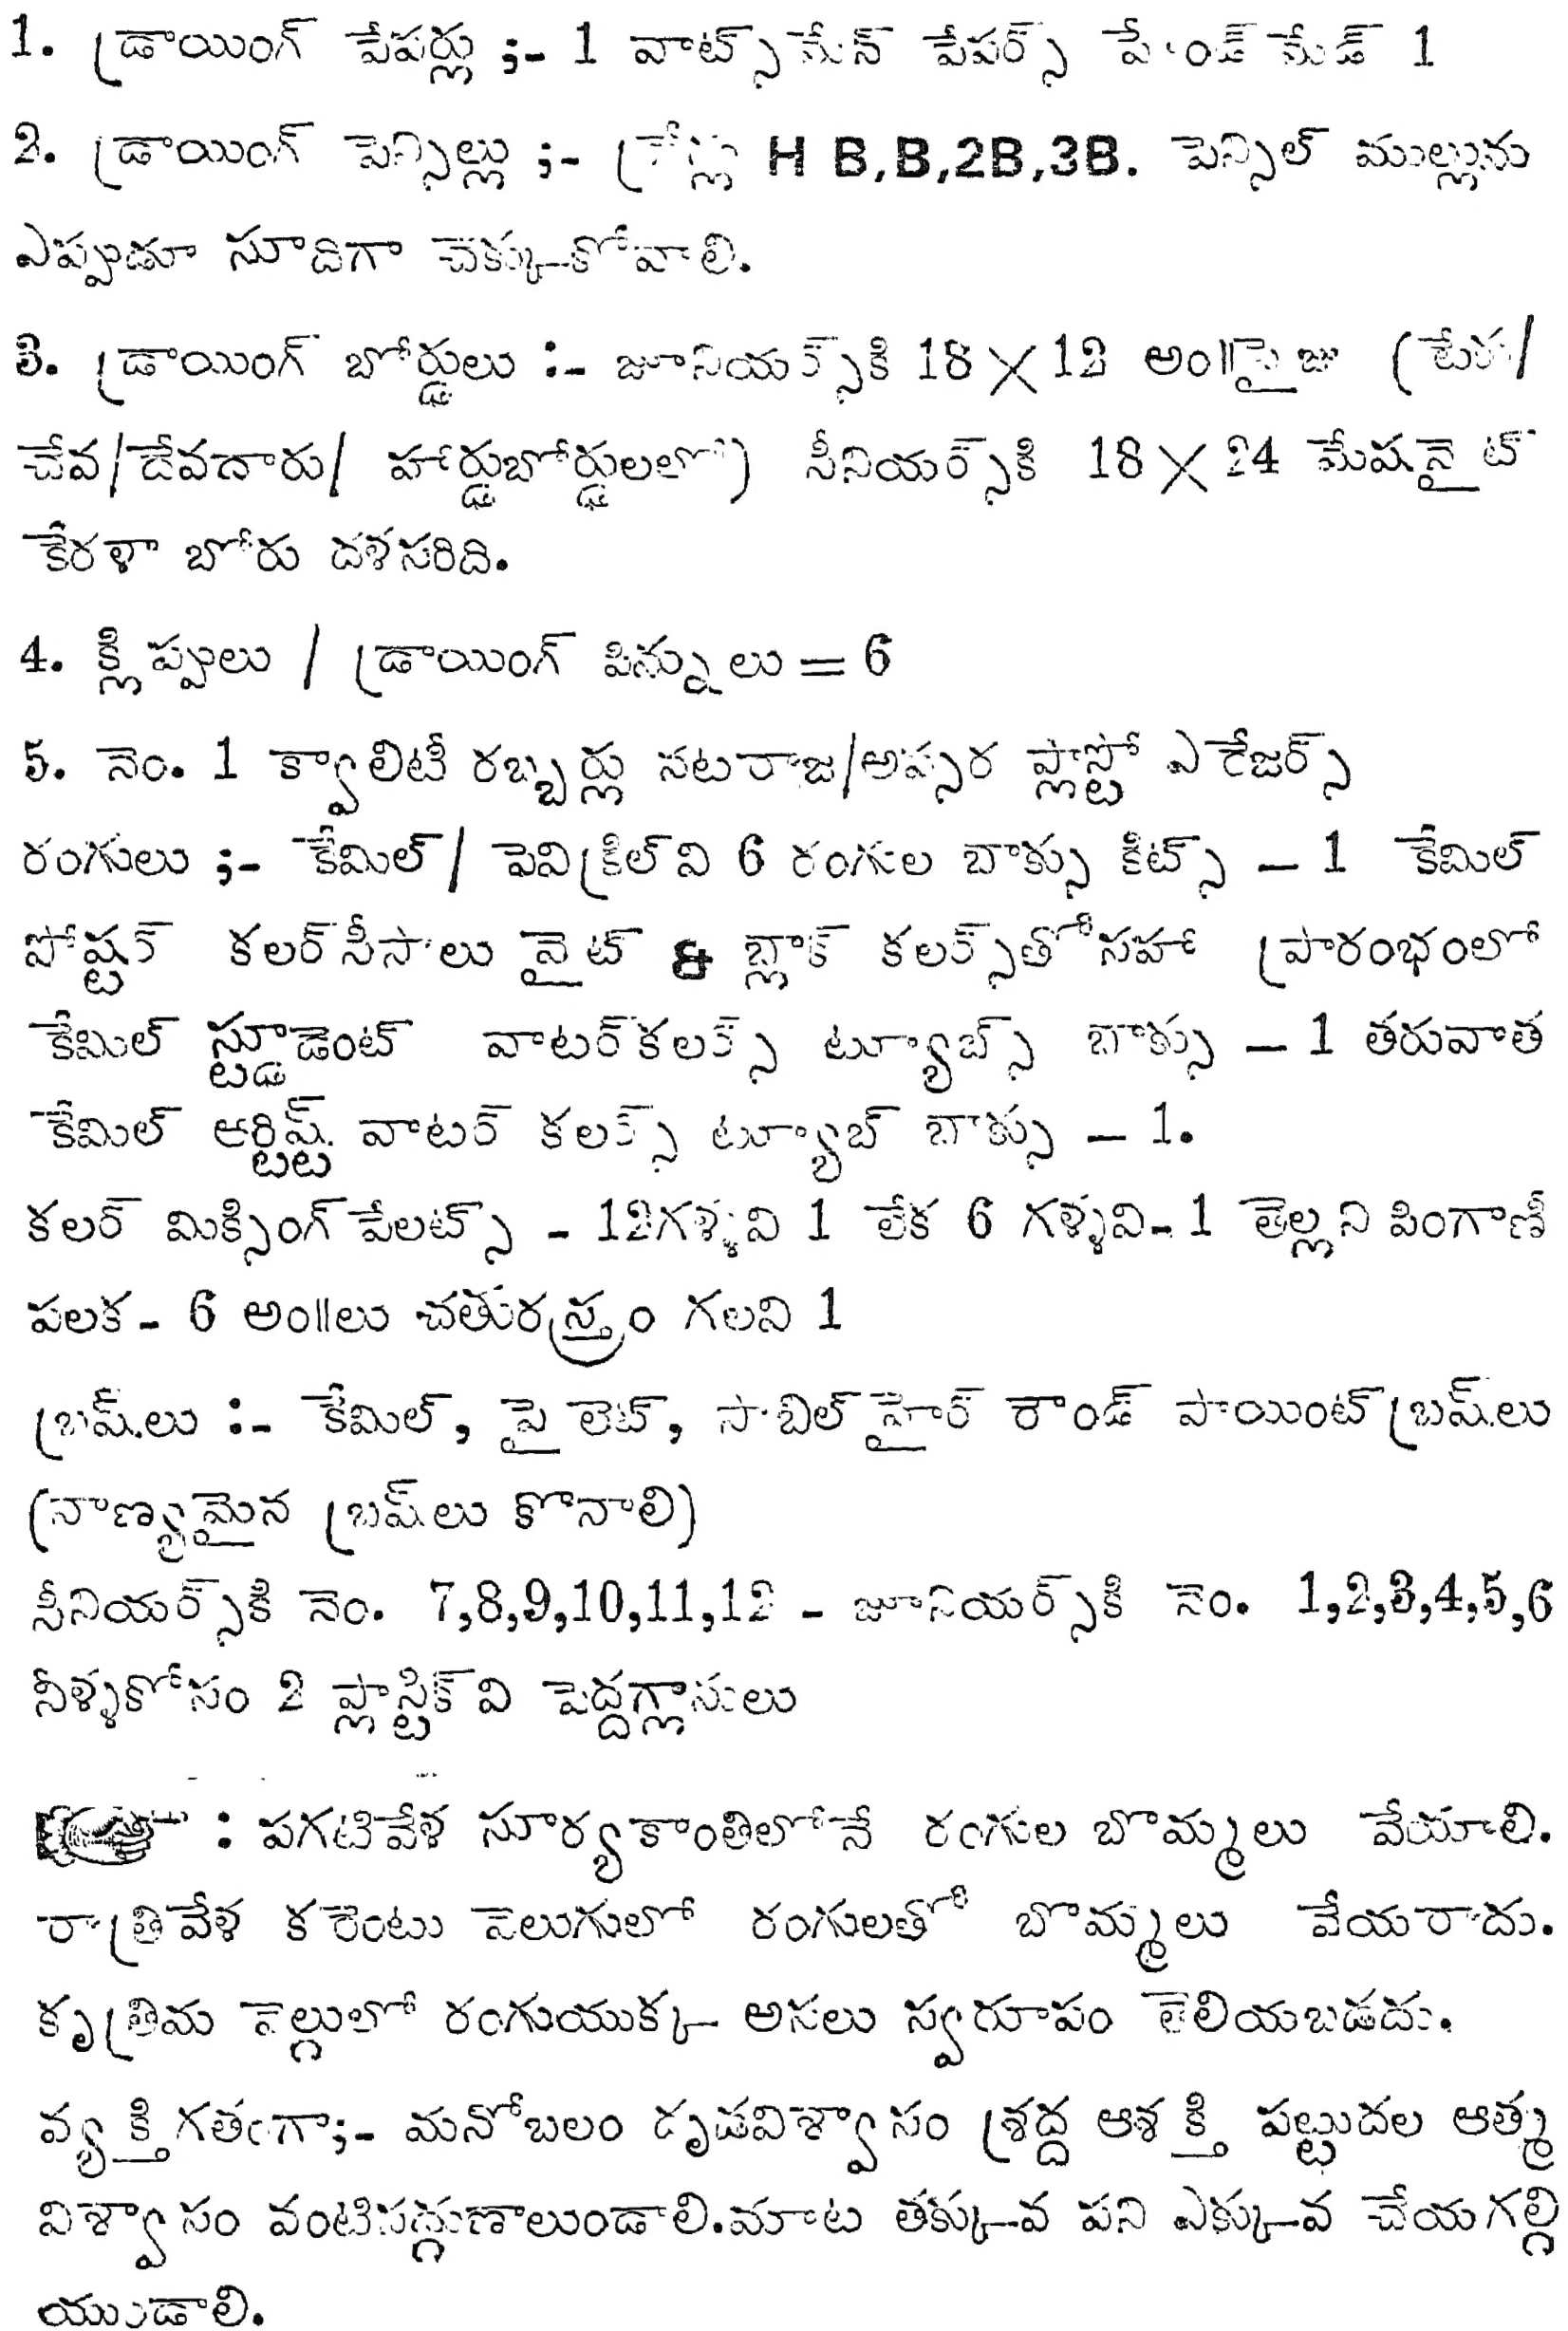 1. డ్రాయింగ్ పేపర్లు ;- 1 వాట్స్‌మేన్ పేపర్స్ హేండ్ మేడ్ 1
2. డ్రాయింగ్ పెన్సిల్లు ;- గ్రేడ్లు H B,B,2B,3B. పెన్సిల్ ముల్లును
ఎప్పుడూ సూదిగా చెక్కుకోవాలి.
3. డ్రాయింగ్ బోర్డులు :- జూనియర్స్‌కి 18 X 12 అం॥సైజు (టేకు/
చేవ/దేవదారు/ హార్డుబోర్డులలో) సీనియర్స్‌కి 18 X 24 మేషనైట్
కేరళా బోరు దళసరిది.
4. క్లిప్పులు / డ్రాయింగ్ పిన్నులు = 6
5. నెం. 1 క్వాలిటీ రబ్బర్లు నటరాజ/అప్సర ప్లాస్టో ఎరేజర్స్
రంగులు ;- కేమిల్/ ఫెవిక్రిల్‌వి 6 రంగుల బాక్సు కిట్స్ – 1 కేమిల్
పోష్టర్ కలర్‌సీసాలు వైట్ & బ్లాక్ కలర్స్‌తోసహా ప్రారంభంలో
కేమిల్ స్టూడెంట్ వాటర్‌కలర్స్ ట్యూబ్స్ బాక్సు – 1 తరువాత
కేమిల్ ఆర్టిష్ట్ వాటర్ కలర్స్ ట్యూబ్ బాక్సు – 1.
కలర్ మిక్సింగ్ పేలట్స్ - 12గళ్ళవి 1 లేక 6 గళ్ళవి-1 తెల్లని పింగాణీ
పలక - 6 అం॥లు చతురస్త్రం గలని 1
బ్రష్‌లు :- కేమిల్, పైలెట్, సాబిల్ హైర్ రౌండ్ పాయింట్ బ్రష్‌లు
(నాణ్యమైన బ్రష్‌లు కొనాలి)
సీనియర్స్‌కి నెం. 7,8,9,10,11,12 - జూనియర్స్‌కి నెం. 1,2,3,4,5,6
నీళ్ళకోసం 2 ప్లాస్టిక్‌వి పెద్దగ్లాసులు
: పగటివేళ సూర్యకాంతిలోనే రంగుల బొమ్మలు వేయాలి.
రాత్రివేళ కరెంటు వెలుగులో రంగులతో బొమ్మలు వేయరాదు.
కృత్రిమ వెల్గులో రంగుయుక్క అసలు స్వరూపం తెలియబడదు.
వ్యక్తిగతంగా;- మనోబలం దృడవిశ్వాసం శ్రద్ద ఆశక్తి పట్టుదల ఆత్మ
విశ్వాసం వంటిసద్గుణాలుండాలి.మాట తక్కువ పని ఎక్కువ చేయగల్గి
యుండాలి.